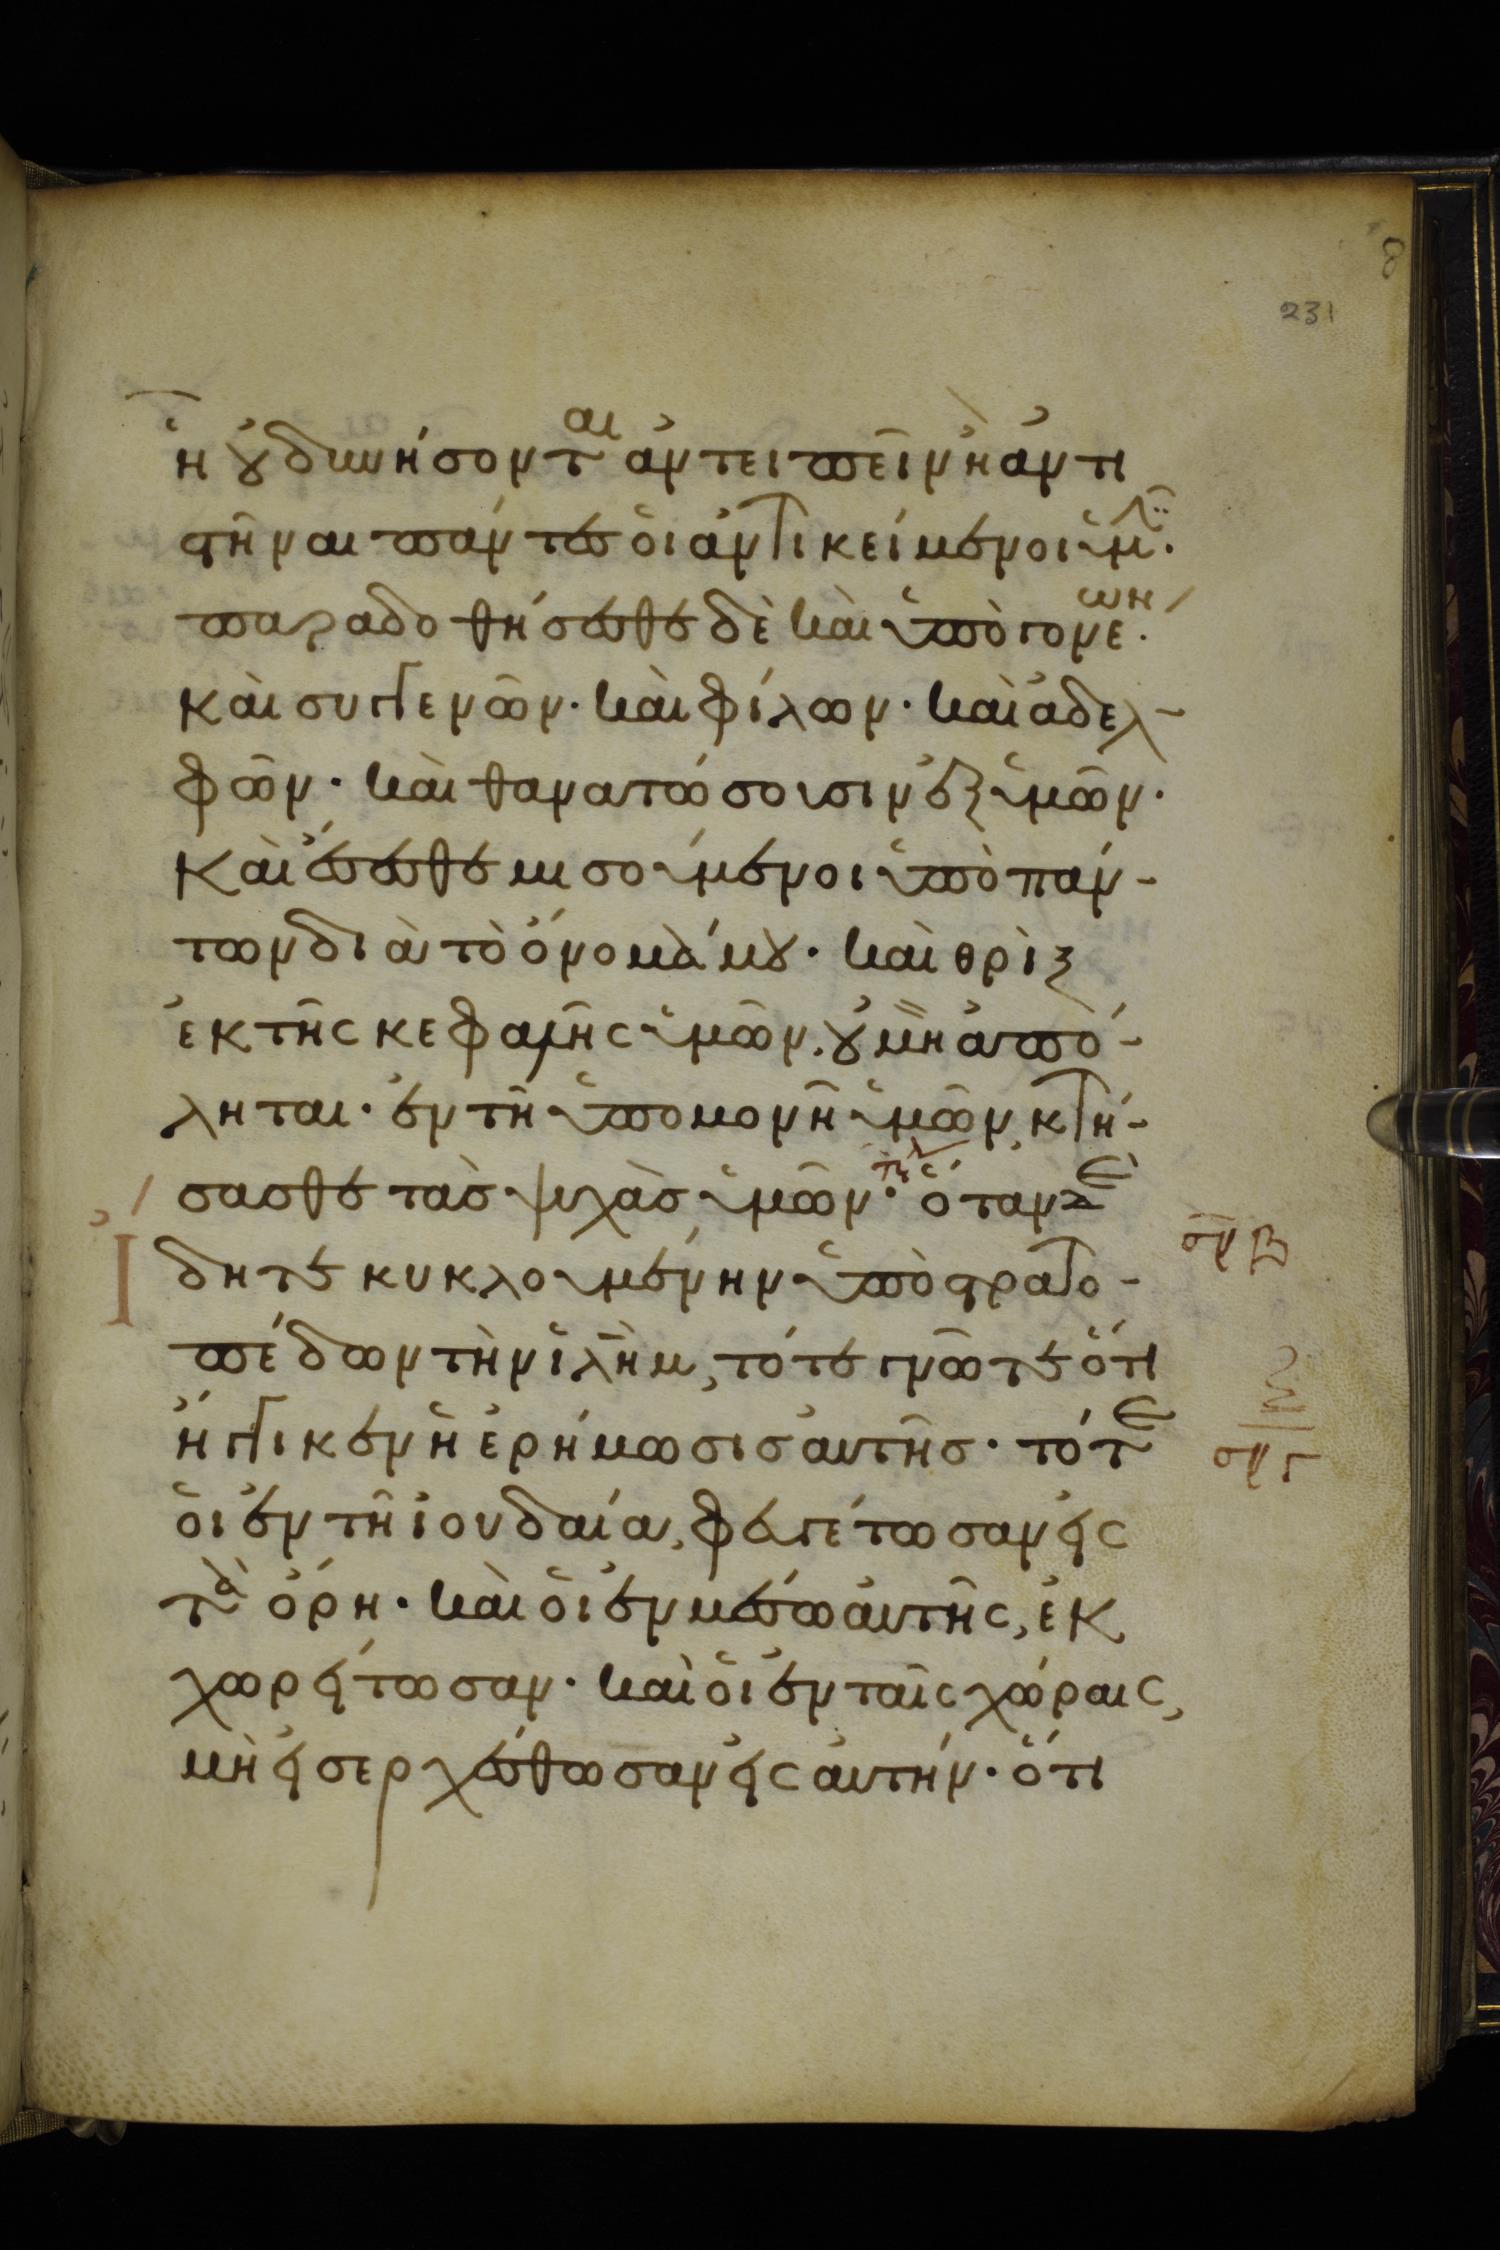 8
231
ἢ οὐ δυνήσονται ἀντειπεῖν ἢ ἀντι
στῆναι πάντες οἱ ἀντικείμενοι ὑμῖν.
παραδοθήσεσθε δὲ καὶ ὑπὸ γονέων·
καὶ συγγενῶν· καὶ φίλων· καὶ ἀδελ-
φῶν· καὶ θανατώσουσιν ἐξ ὑμῶν·
Καὶ ἔσεσθε μισούμενοι ὑπὸ πάν-
των διὰ τὸ ὄνομά μου· καὶ θρὶξ
ἐκ τῆς κεφαλῆς ὑμῶν. οὐ μὴ ἀπό-
ληται· ἐν τῇ ὑπομονῇ ὑμῶν, κτή-
σασθε τὰς ψυχὰς ὑμῶν· ὅταν δὲ
Ἴδητε κυκλουμένην ὑπὸ στρατο- σμβ
πέδων τὴν ἱλὴμ, τότε γνῶτε ὅτι
ἤγγικεν ἡ ἐρήμωσις αὐτῆς· τότε σμγ
οἱ ἐν τῇ ἰουδαία, φευγέτωσαν εἰς
τὰ ὄρη· καὶ οἱ ἐν μέσω αὐτῆς, ἐκ
χωρείτωσαν· καὶ οἱ ἐν ταῖς χώραις,
μὴ εἰσερχέσθωσαν εἰς αὐτήν· ὅτι